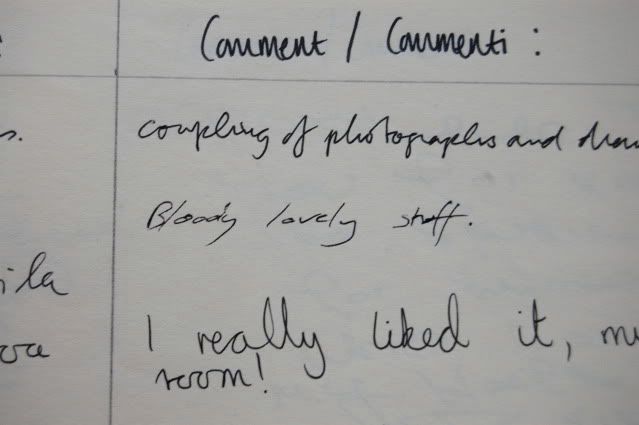 Comment / Commenti :
coupling of photographs and
Bloody lovely stuff.
I really liked it,
room!